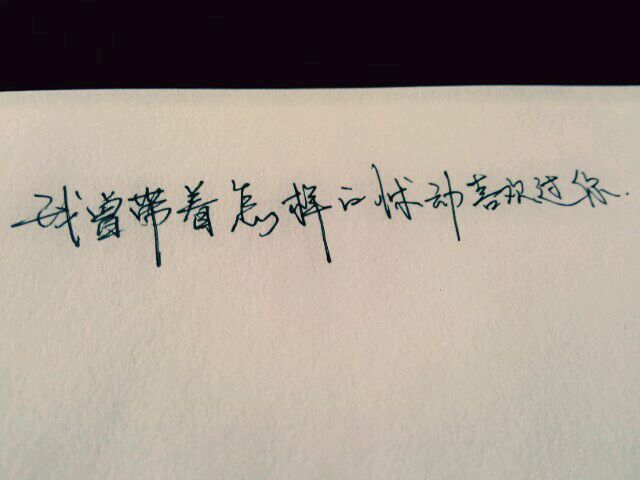 我曾带着怎样的悸动喜欢过你.